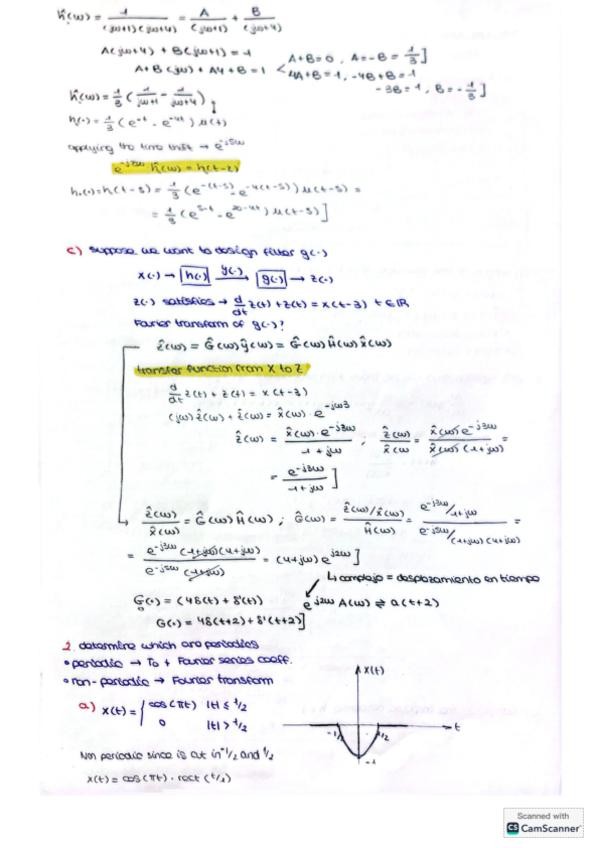 ĥ(ω) = 1/((jω+1)(jω+4)) = A/(jω+1) + B/(jω+4)
A(jω+4) + B(jω+1) = 1
A+B(jω) + A4+B = 1 < A+B=0, A=-B = 1/3 ]
4A+B=1, -4B+B=1
-3B=1, B=-1/3 ]
Ĥ(ω) = 1/3 (1/(jω+1) - 1/(jω+4))
h(·) = 1/3 (e^-t - e^-4t) u(t)
applying the time shift → e^-j5ω
e^-j2ω · Ĥ(ω) = h(t-2)
h.(·) = h(t-5) = 1/3 (e^-(t-5) - e^-4(t-5)) u(t-5) =
= 1/3 (e^5-t - e^20-4t) u(t-5) ]
c) suppose we want to design filter g(·)
x(·) → h(·) y(·) → g(·) → z(·)
z(·) satisfies → d/dt z(t) + z(t) = x(t-3) t∈ℝ
Fourier transform of g(·)?
ẑ(ω) = Ĝ(ω) ŷ(ω) = Ĝ(ω) Ĥ(ω) x̂(ω)
transfer function from X to Z
d/dt z(t) + z(t) = x(t-3)
(jω) ẑ(ω) + ẑ(ω) = x̂(ω) · e^-jω3
ẑ(ω) = x̂(ω) · e^-j3ω / (1+jω) ; ẑ(ω)/x̂(ω) = x̂(ω) e^-j3ω / (x̂(ω) (1+jω)) =
= e^-j3ω / (1+jω) ]
ẑ(ω)/x̂(ω) = Ĝ(ω) Ĥ(ω) ; Ĝ(ω) = (ẑ(ω)/x̂(ω)) / Ĥ(ω) = (e^-j3ω/1+jω) / (e^-j5ω/(1+jω)(4+jω)) =
= e^-j3ω (1+jω)(4+jω) / (e^-j5ω (1+jω)) = (4+jω) e^j2ω ]
↳ complejo = desplazamiento en tiempo
G(·) = (4δ(t) + δ'(t)) e^j2ω A(ω) ⇌ a(t+2)
G(·) = 4δ(t+2) + δ'(t+2) ]
2. determine which are periodics
• periodic → To + Fourier series coeff.
• non-periodic → Fourier transform
x(t)
a) x(t) = { cos(πt) |t| ≤ 1/2
0 |t| > 1/2
-1/2 1/2 t
-1
Non periodic since is cut in -1/2 and 1/2
x(t) = cos(πt) · rect(t/1)
Scanned with
CS CamScanner